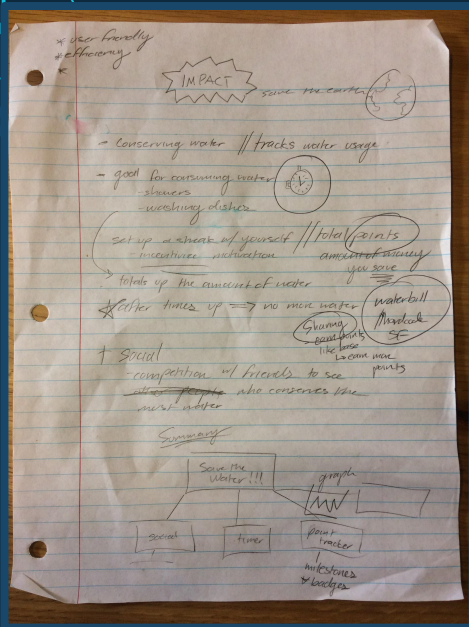 * user friendly
* efficiency
*
IMPACT
save the earth
- conserving water // tracks water usage
- goal for consuming water
- showers
- washing dishes
set up a streak w/ yourself // total points
- incentives motivation
amount of money
you save
totals up the amount of water
* after times up => no more water
waterbill
Sharing
earn points
like
earn more
points
SF
+ social
- competition w/ friends to see
other people who conserves the
most water
Summary
Save the
Water!!!
graph
social
timer
point
tracker
milestones
& badges